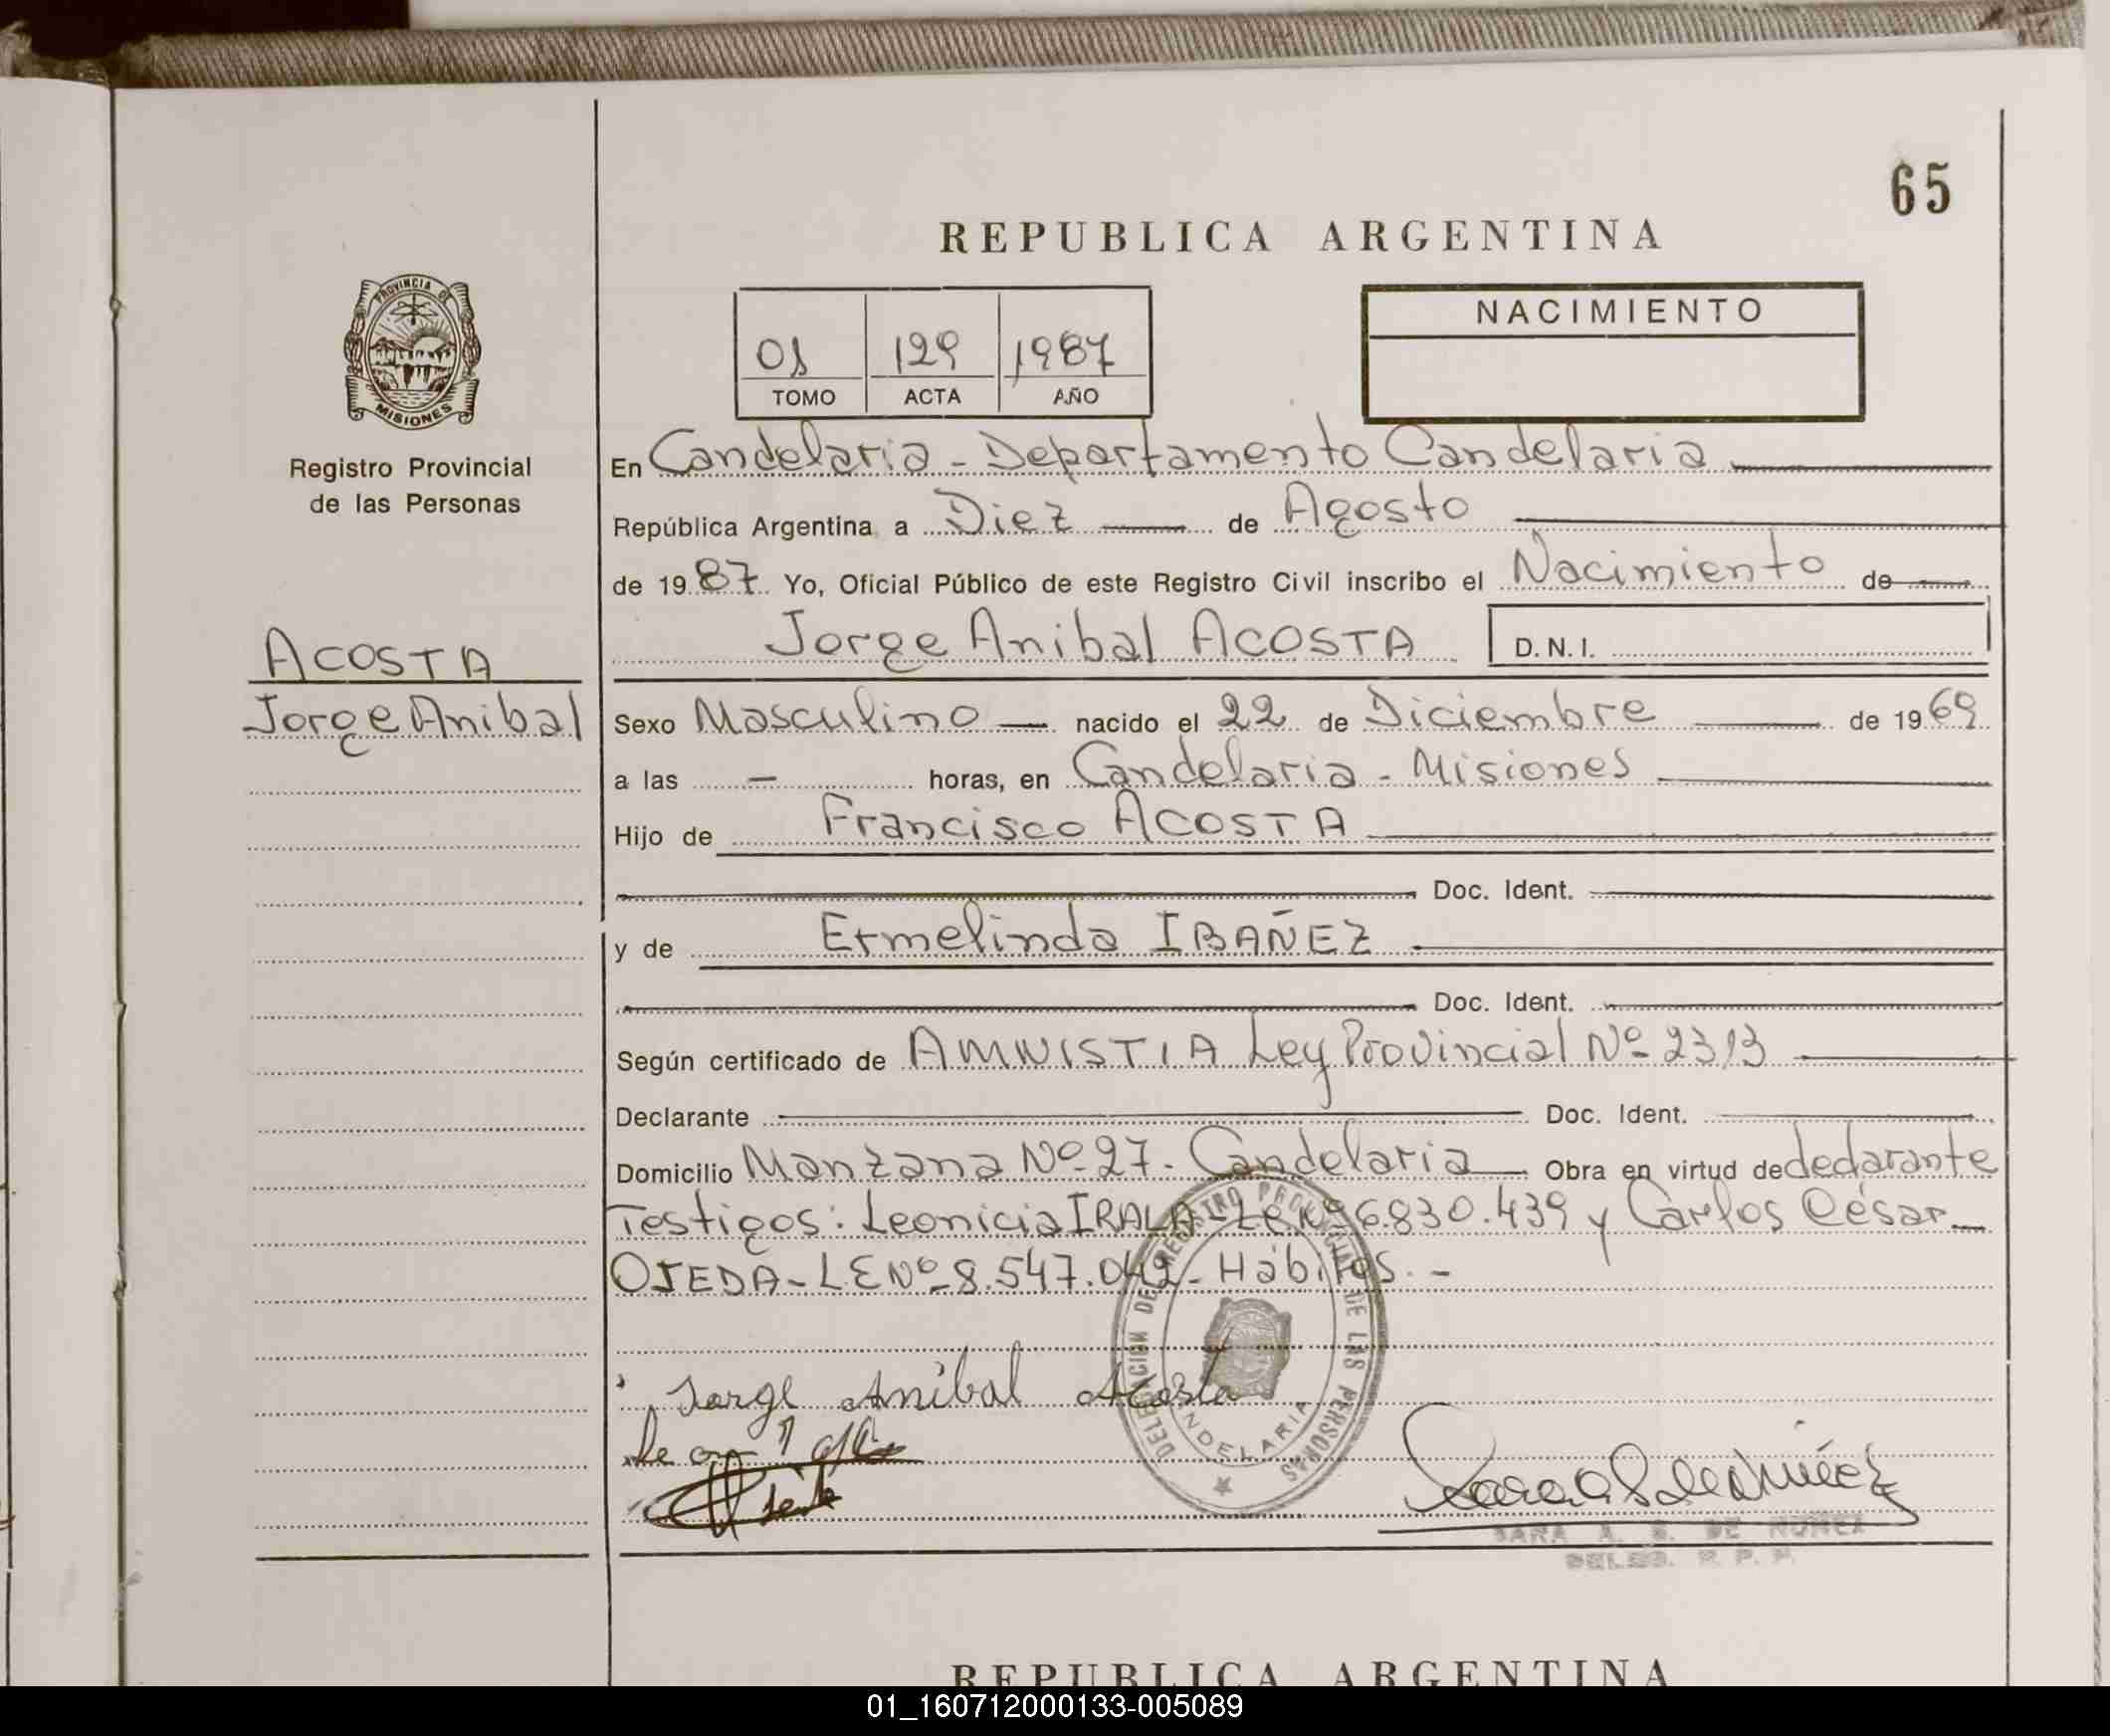 65
REPUBLICA ARGENTINA
PROVINCIA DE
MISIONES
Registro Provincial
de las Personas
ACOSTA
Jorge Anibal
01 129 1987
TOMO ACTA AÑO
NACIMIENTO
En Candelaria - Departamento Candelaria
República Argentina a Diez de Agosto
de 1987 Yo, Oficial Público de este Registro Civil inscribo el Nacimiento de
Jorge Anibal ACOSTA D.N.I.
Sexo Masculino nacido el 22 de Diciembre de 1969
a las — horas, en Candelaria - Misiones
Hijo de Francisco ACOSTA
Doc. Ident.
y de Ermelinda IBAÑEZ
Doc. Ident.
Según certificado de AMNISTIA Ley Provincial Nº 2313
Declarante Doc. Ident.
Domicilio Manzana Nº 27 - Candelaria Obra en virtud de declarante
Testigos: Leonicia IRALA - LE Nº 6.830.439 y Carlos César
OJEDA - LE Nº 8.547.042 - Hábiles. -
DELEGACION DEL REGISTRO PROVINCIAL DE LAS PERSONAS
CANDELARIA
Jorge Anibal Acosta
SARA A. S. DE NUÑEZ
DELEG. R. P. P.
REPUBLICA ARGENTINA
01_160712000133-005089